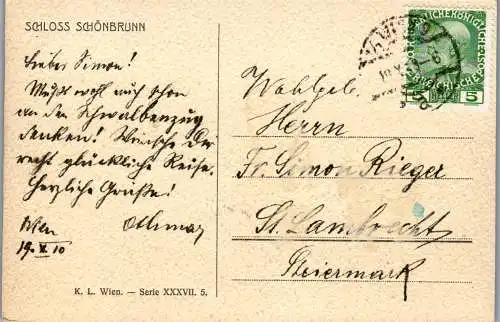 SCHLOSS SCHÖNBRUNN
Liebes Simon!
Mußt wohl auch schon
an den Schwalbenzug
denken! Wünsche Dir
recht glückliche Reise.
Herzliche Grüße!
Wien
Othmar
19. X. 10
K. L. Wien. – Serie XXXVII. 5.
WIEN
5
5
Wohlgeb.
Herrn
Fr. Simon Rieger
St. Lambrecht
Steiermark